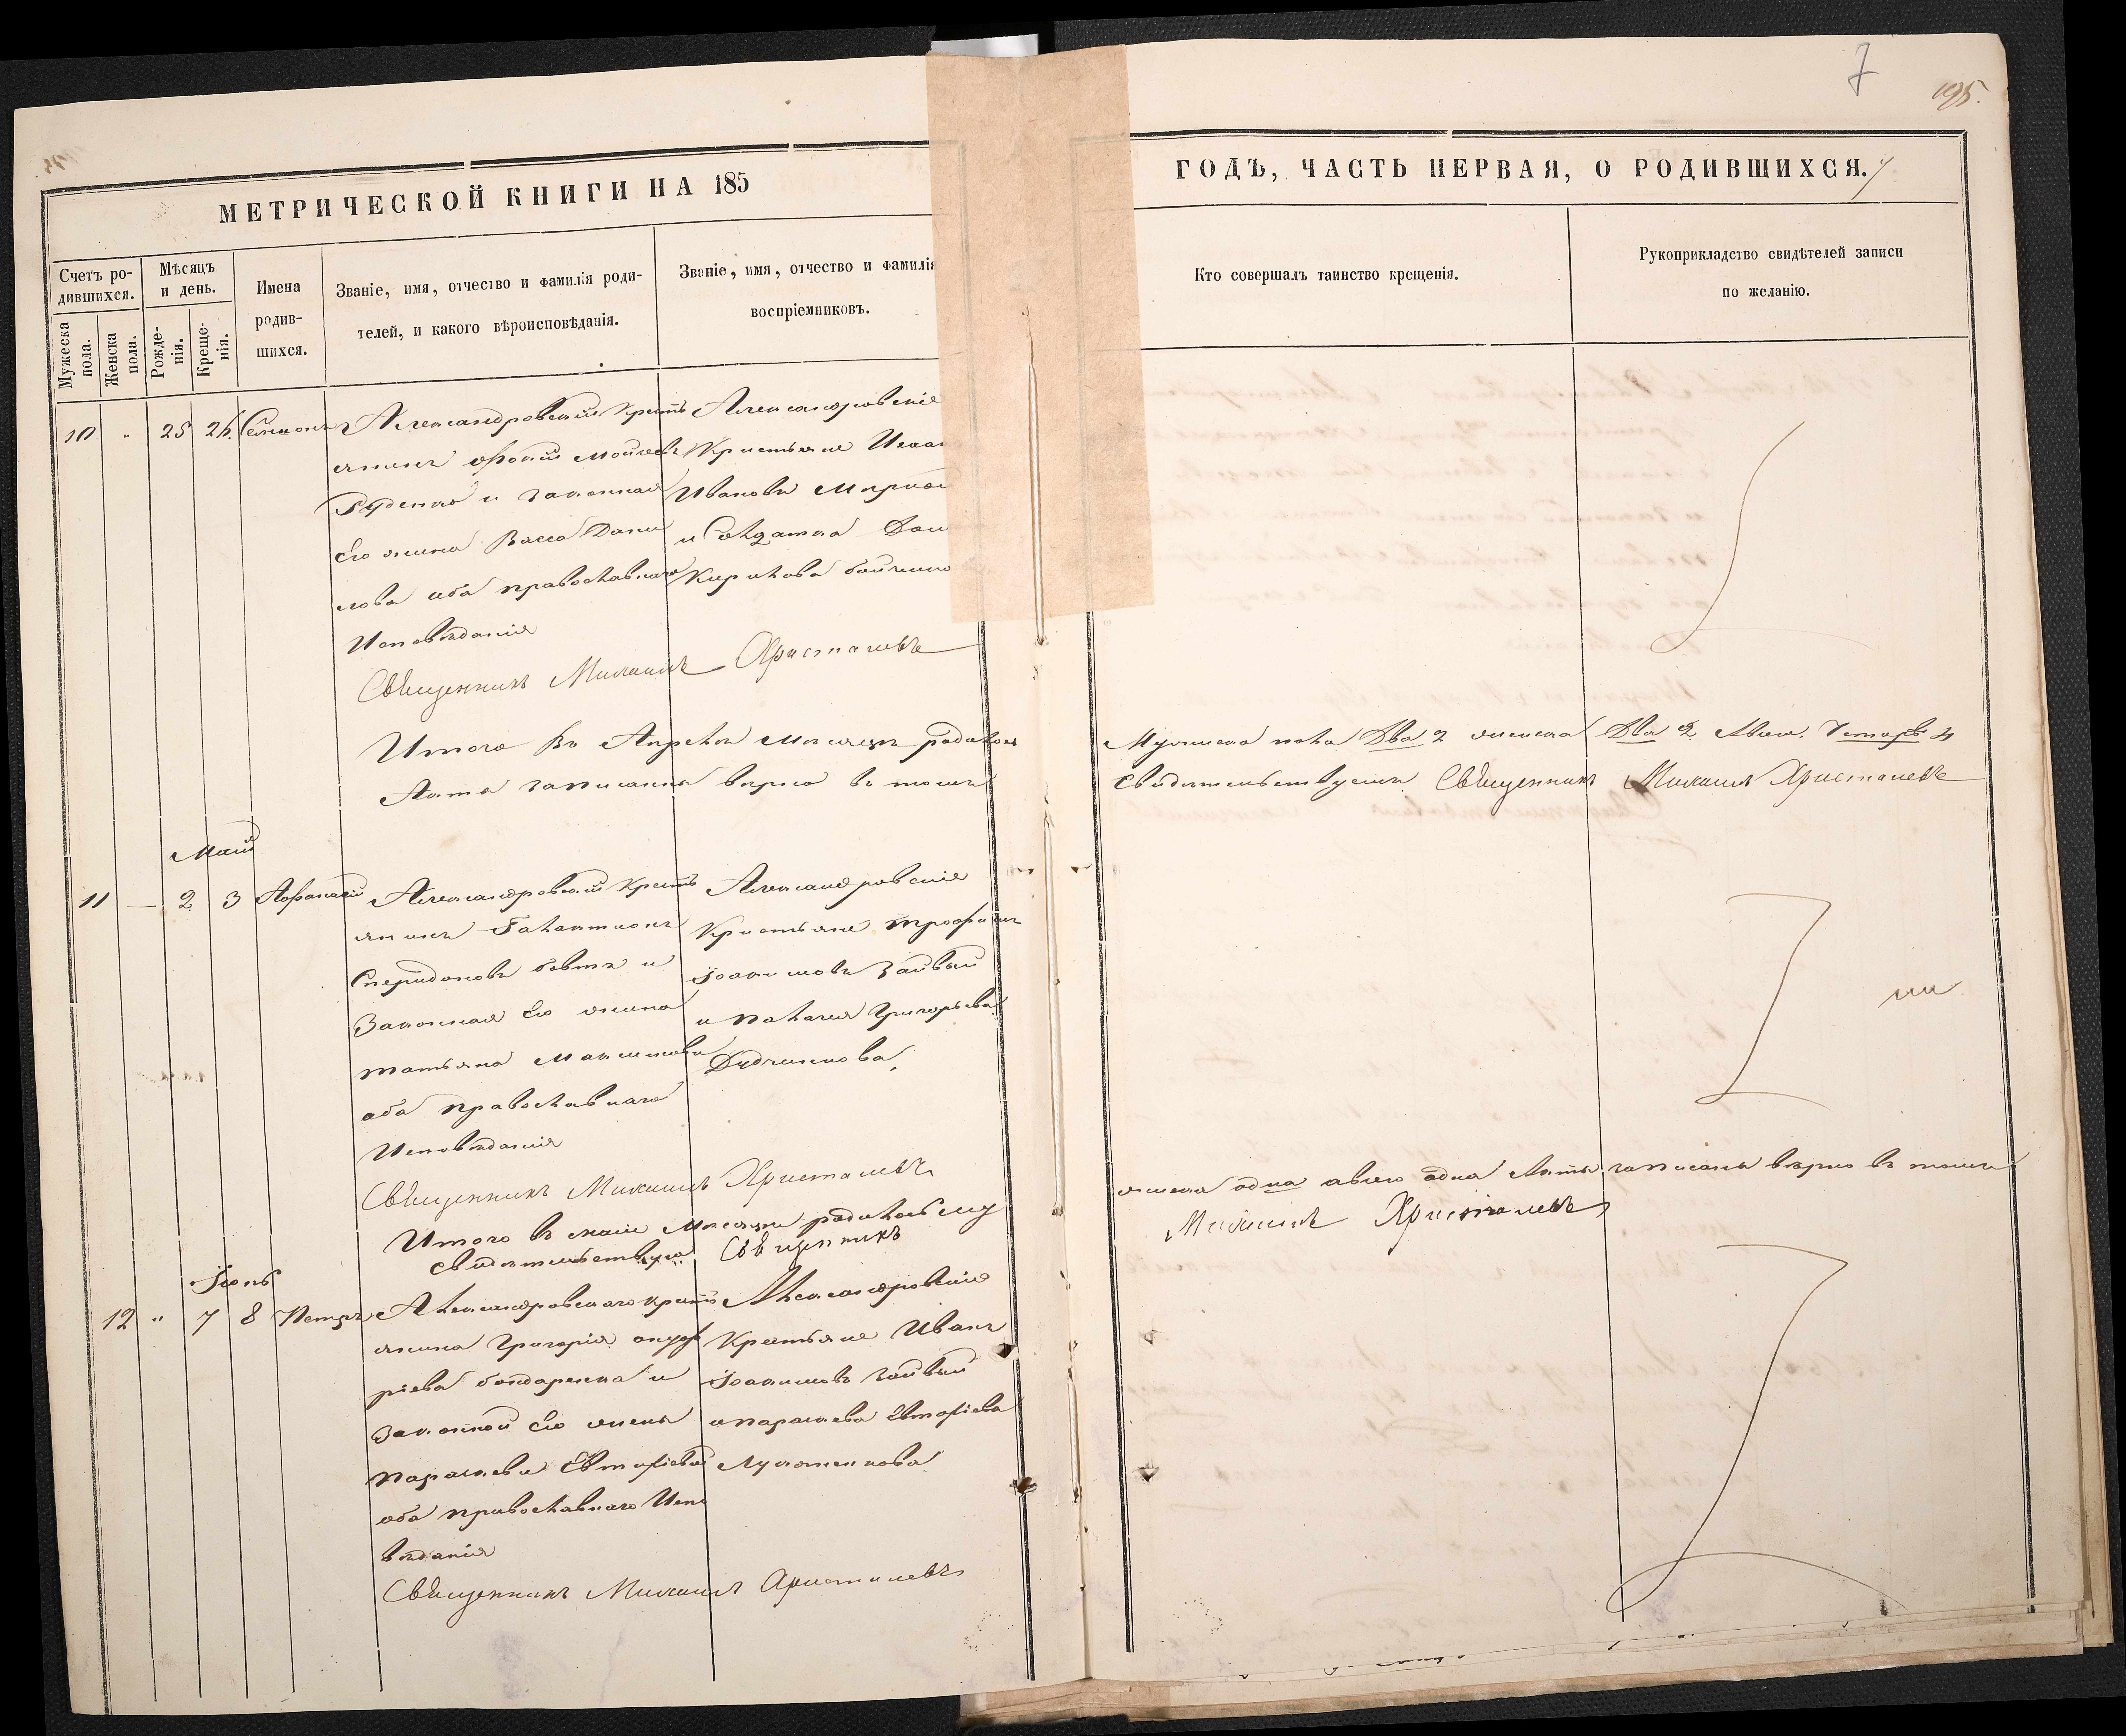 7
195.
МЕТРИЧЕСКОЙ КНИГИ НА 185
ГОДЪ, ЧАСТЬ ПЕРВАЯ, О РОДИВШИХСЯ. 7
Счетъ родившихся.
Мужеска пола.
Женска пола.
Мѣсяцъ и день.
Рожденія.
Крещенія.
Имена родившихся.
Званіе, имя, отчество и фамилія родителей, и какого вѣроисповѣданія.
Званіе, имя, отчество и фамилія воспріемниковъ.
Кто совершалъ таинство крещенія.
Рукоприкладство свидѣтелей записи по желанію.
10 " 25 26 Симеонъ
Александровскій Кресть
янинъ Мойсеевъ
Руденко и законная
Его жена Васса Дани
лова оба православнаго
Исповѣданія
Александровскіе
Крестьяне
Ивановъ
и Солдатка
Кирилова
Священникъ Михаилъ Христалевъ
Итого Въ Апрелѣ Мѣсяцѣ родилось
Мужеска пола Два 2 женска Два 2 Четыре 4
Акта записаны вѣрно въ томъ
Свидѣтельствуемъ Священникъ Михаилъ Христалевъ
Май
11 — 2 3 Афанасій
Александровскій Кресть
янинъ Галактионъ
Спиридоновъ Бовть и
Законная Его жена
татьяна Максимова
оба православнаго
Исповѣданія
Александровскіе
Крестьяне трофимъ
Іоакимовъ
и палагея Григорьева
Священникъ Михаилъ Христалевъ
Итого въ маіе Мѣсяцѣ родилось муж
женска одна авсего одна Акты записаны вѣрно въ томъ
свидѣтельствую Священникъ
Михаилъ Христалевъ
Іюнь
12 " 7 8 Петръ
Александровскаго кресть
янина Григорія ануф
ріева бондаренка и
Законной Его жены
параскевы Евтифіевой
оба православнаго Испо
вѣданія
Александровскіе
Крестьяне Иванъ
Іоакимовъ
и параскева Евтифіева
Священникъ Михаилъ Христалевъ